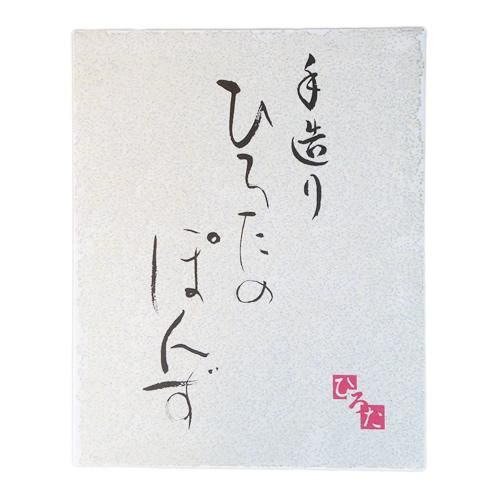 手造り
ひろたの
ぽんず
ひろた